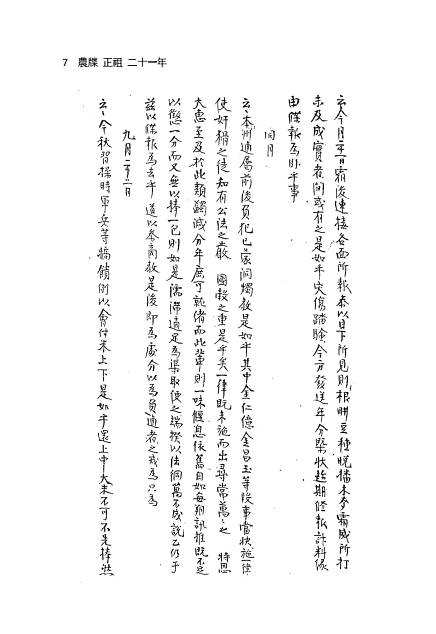 7 農牒 正祖 二十一年
云今月二十一日霜後連接各面所報泰以目下所見則根耕豆種晩播木麥霜威所打
未及成實者間或有之是如乎灾傷踏驗今方發送年分槩狀趁期修報計料緣
由牒報爲臥乎事
同月
云本州逋屬前後負犯已蒙洞燭教是如乎其中金仁億金昌玉等後事當快施一律
使奸猾之徒知有公法之嚴 國穀之重是乎矣一律既未施而出尋常萬萬之 特恩
大惠至及於此類蠲減分年庶可就緖而此輩則一味偃息依舊自如每朔訊推既不足
以懲一分而又無以捧一包則如是濡滯適足爲渠取便之端揆以法綱萬不成說乙仍于
玆以牒報爲去乎 道以參商教是後卽爲處分以爲負逋者之戒爲只爲
九月二十二月
云今秋習操時軍兵等犒饋例以會付米上下是如乎還上中大米不可不先捧然